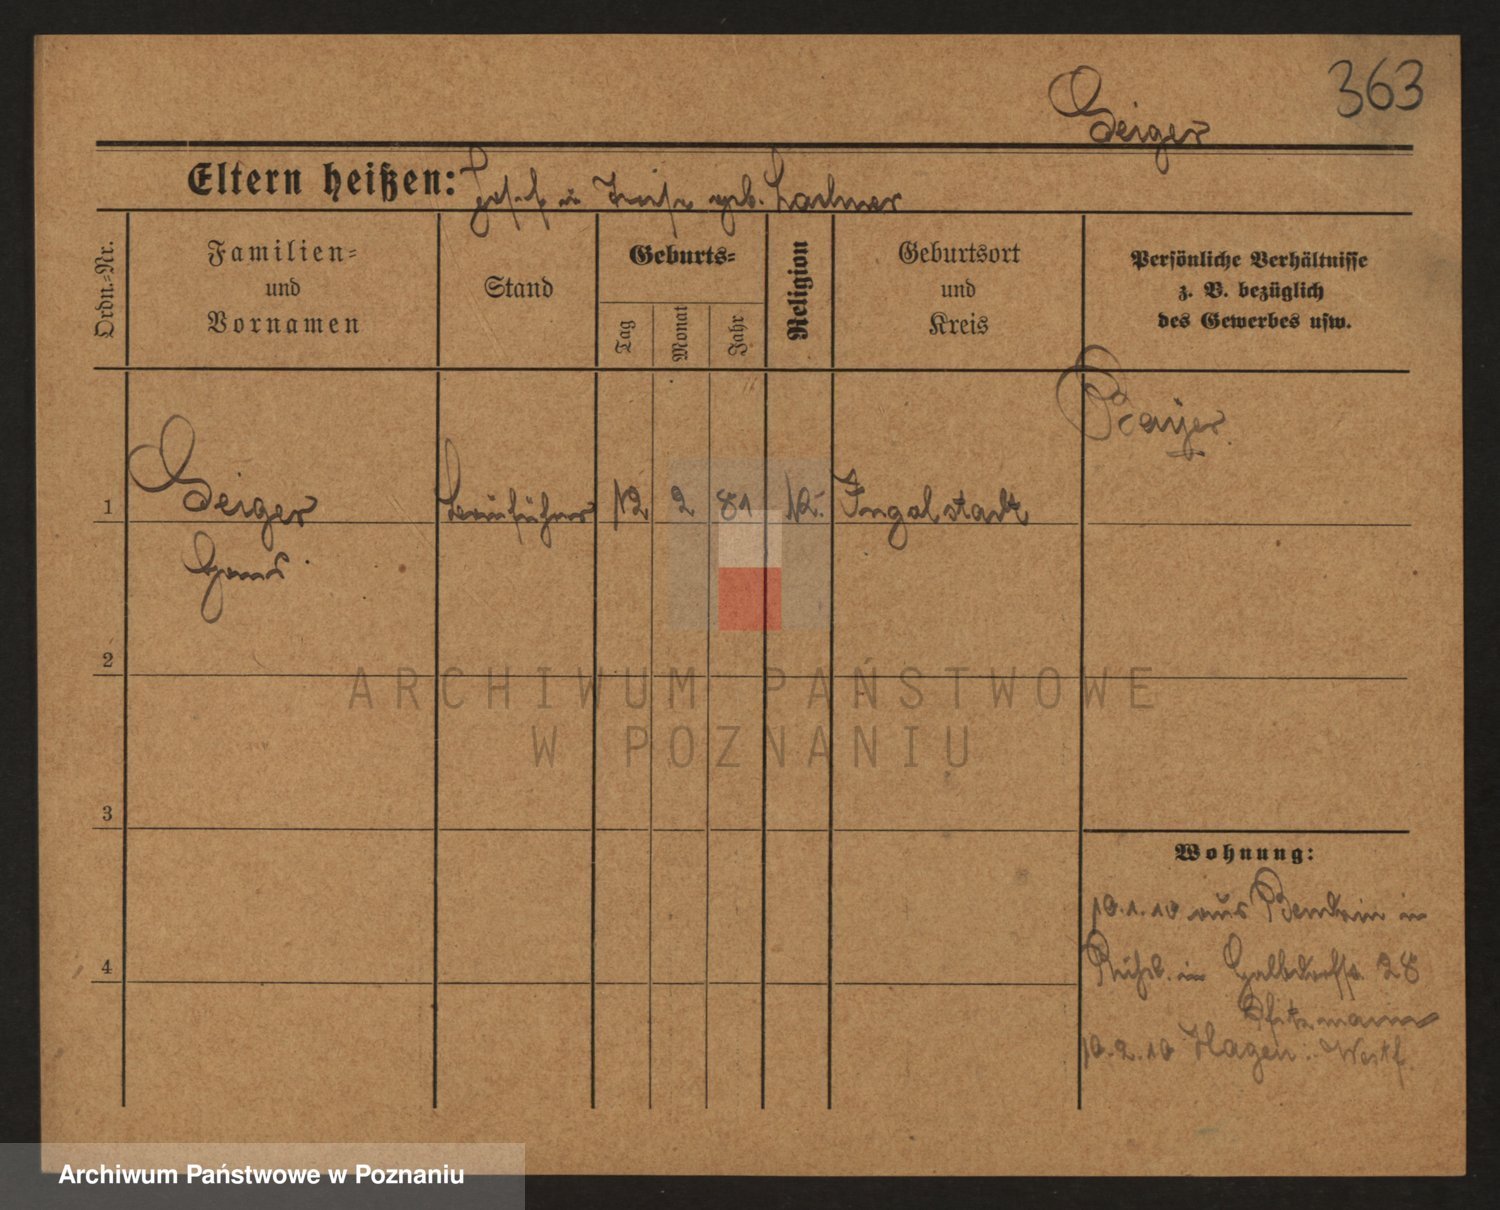 363
Geiger
Eltern heißen: Josef u geb. Lachner
Ordn.-Nr.
Familien-
und
Vornamen
Stand
Geburts-
Tag
Monat
Jahr
Religion
Geburtsort
und
Kreis
Persönliche Verhältnisse
z. B. bezüglich
des Gewerbes usw.
Bayer.
1
Geiger
Hans
12 2 81
Ingolstadt
2
3
4
Wohnung:
10.1.10 aus in
in 28
10.2.10 Hagen i. Westf.
ARCHIWUM PAŃSTWOWE
W POZNANIU
Archiwum Państwowe w Poznaniu